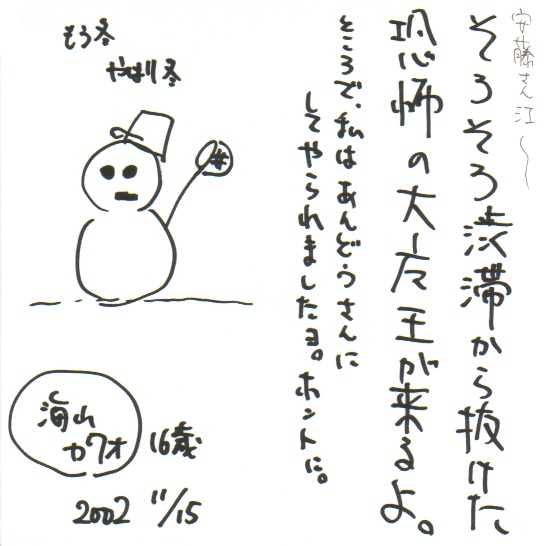 安藤さん江〜
そろそろ渋滞から抜けた、
恐怖の大广王が来るよ。
ところで、私はあんどうさんに
してやられましたヨ。ホントに。
もう冬
やはり冬
海山
カワオ
16歳
2002 11/15